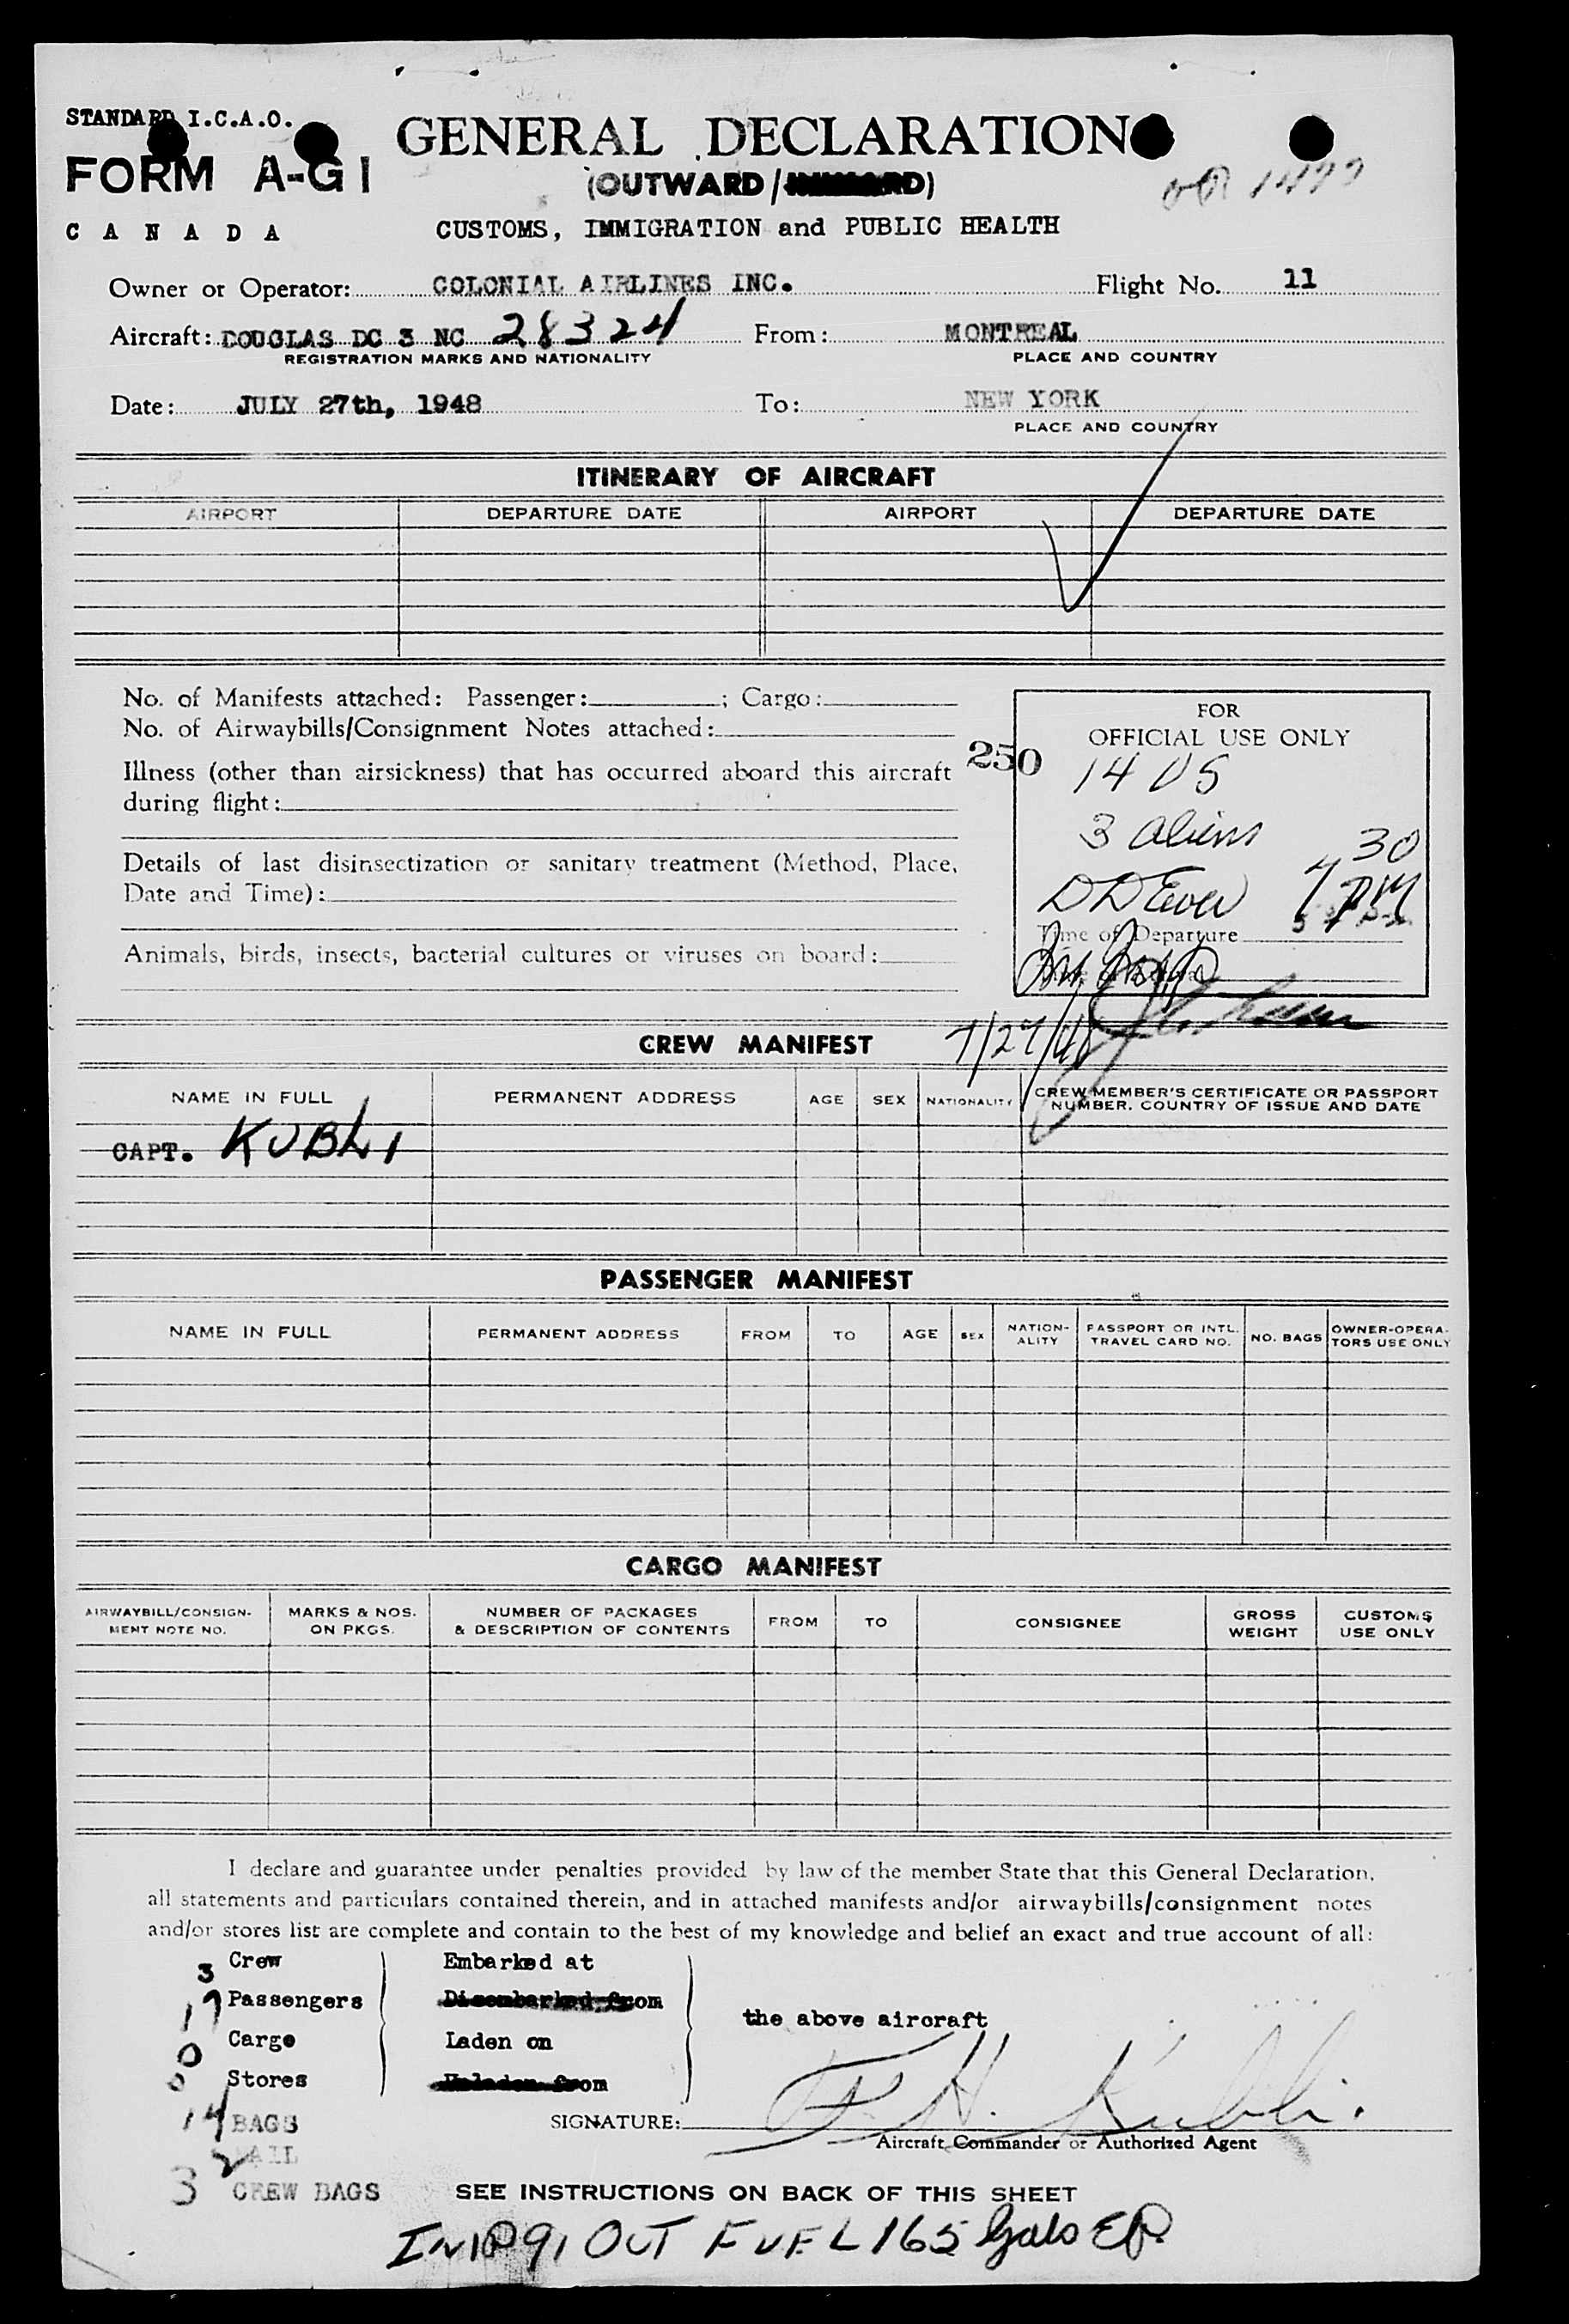 STANDARD I.C.A.O.
FORM A-G1
CANADA
GENERAL DECLARATION
(OUTWARD/
CUSTOMS, IMMIGRATION and PUBLIC HEALTH
Owner or Operator: COLONIAL AIRLINES INC. Flight No. 11
Aircraft: DOUGLAS DC 3 NC 28324 From: MONTREAL
REGISTRATION MARKS AND NATIONALITY PLACE AND COUNTRY
Date: JULY 27th, 1948 To: NEW YORK
PLACE AND COUNTRY
ITINERARY OF AIRCRAFT
AIRPORT DEPARTURE DATE AIRPORT DEPARTURE DATE
No. of Manifests attached: Passenger: ; Cargo:
No. of Airwaybills/Consignment Notes attached:
Illness (other than airsickness) that has occurred aboard this aircraft
during flight:
Details of last disinsectization or sanitary treatment (Method, Place,
Date and Time):
Animals, birds, insects, bacterial cultures or viruses on board:
250
FOR
OFFICIAL USE ONLY
14 US
3 aliens
7 30
PM
Time of Departure
7/27/48
CREW MANIFEST
NAME IN FULL PERMANENT ADDRESS AGE SEX NATIONALITY CREW MEMBER'S CERTIFICATE OR PASSPORT
NUMBER, COUNTRY OF ISSUE AND DATE
CAPT. KUBLI
PASSENGER MANIFEST
NAME IN FULL PERMANENT ADDRESS FROM TO AGE SEX NATION-
ALITY PASSPORT OR INTL.
TRAVEL CARD NO. NO. BAGS OWNER-OPERA-
TORS USE ONLY
CARGO MANIFEST
AIRWAYBILL/CONSIGN-
MENT NOTE NO. MARKS & NOS.
ON PKGS. NUMBER OF PACKAGES
& DESCRIPTION OF CONTENTS FROM TO CONSIGNEE GROSS
WEIGHT CUSTOMS
USE ONLY
I declare and guarantee under penalties provided by law of the member State that this General Declaration,
all statements and particulars contained therein, and in attached manifests and/or airwaybills/consignment notes
and/or stores list are complete and contain to the best of my knowledge and belief an exact and true account of all:
3 Crew Embarked at
17 Passengers Disembarked from
the above aircraft
0 Cargo Laden on
0 Stores Unladen from
14 BAGS
SIGNATURE: F. H. Kubli.
Aircraft Commander or Authorized Agent
2 MAIL
3 CREW BAGS
SEE INSTRUCTIONS ON BACK OF THIS SHEET
OUT FUEL 165 Gals